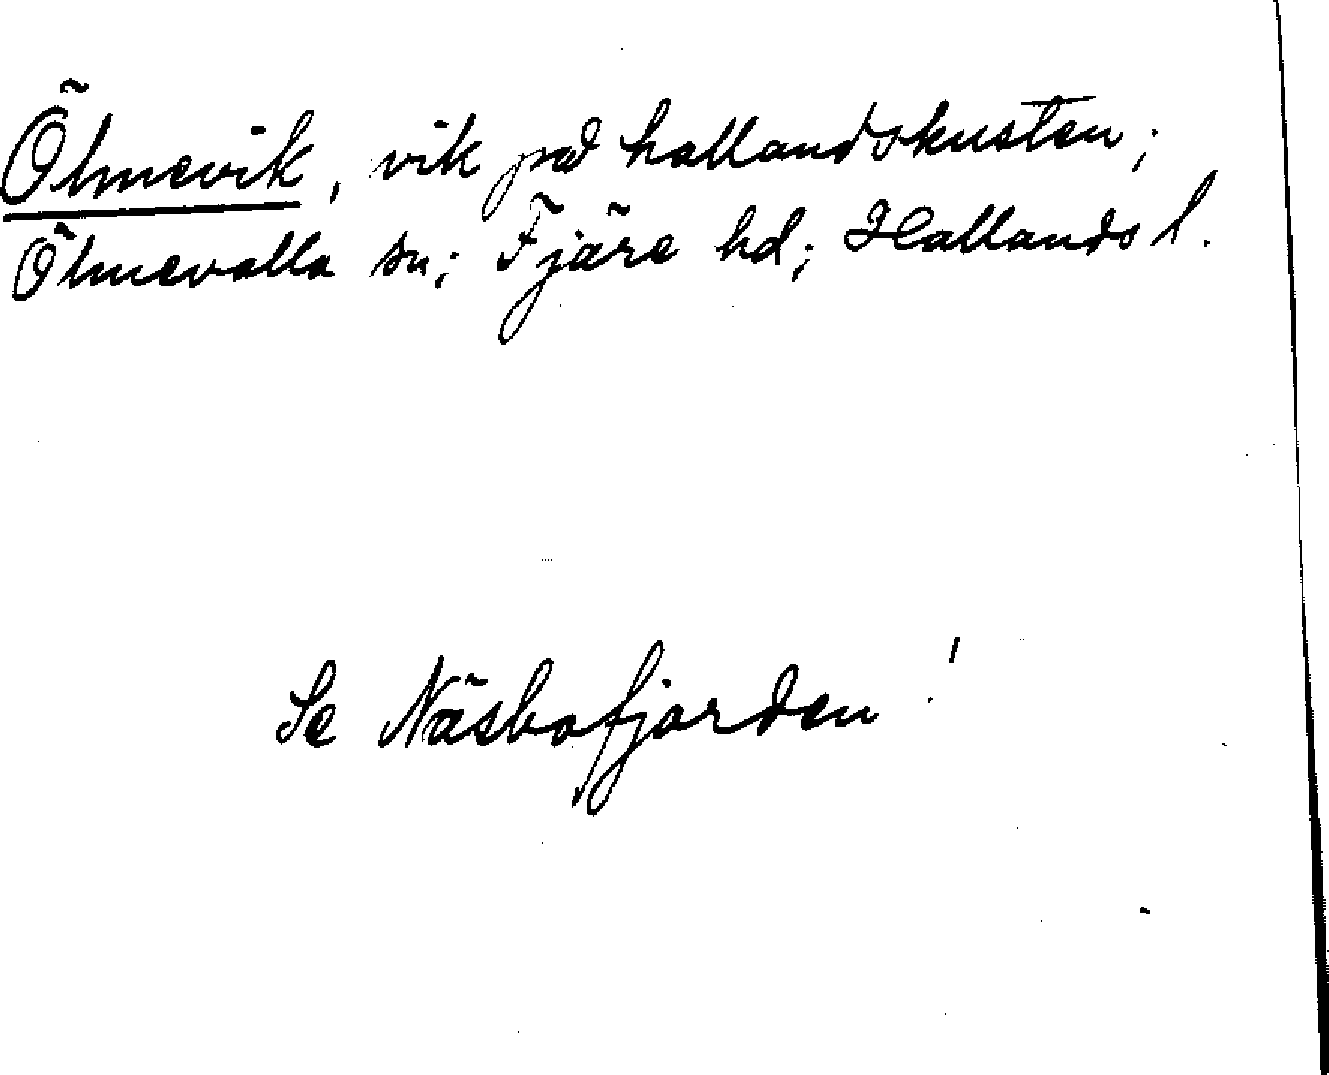 Ölmevik, vik på hallandskusten;
Ölmevalla sn; Fjäre hd; Hallands l.
Se Näsbofjorden!